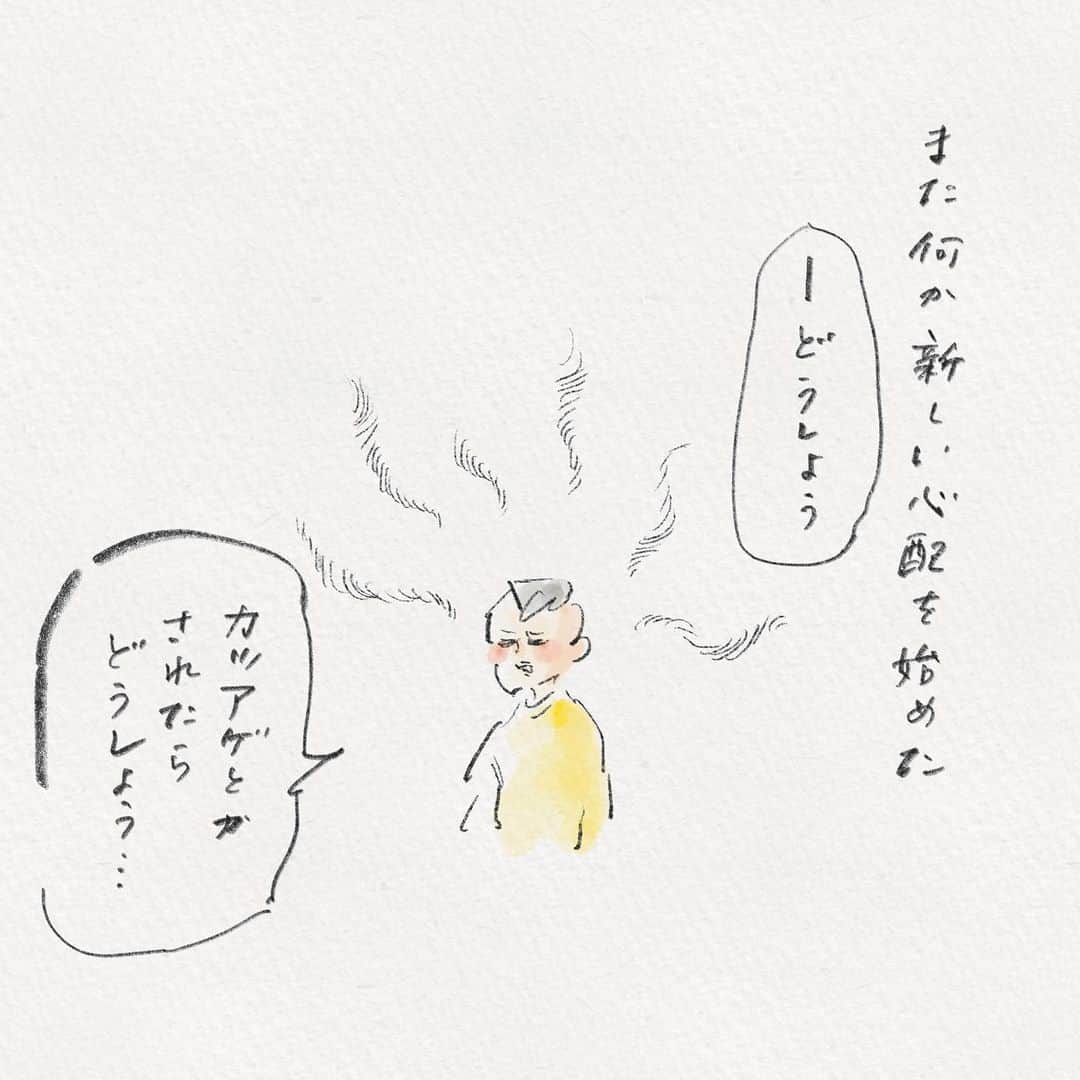 また何か新しい心配を始めた
ーどうしよう
カツアゲとか
されたら
どうしよう…